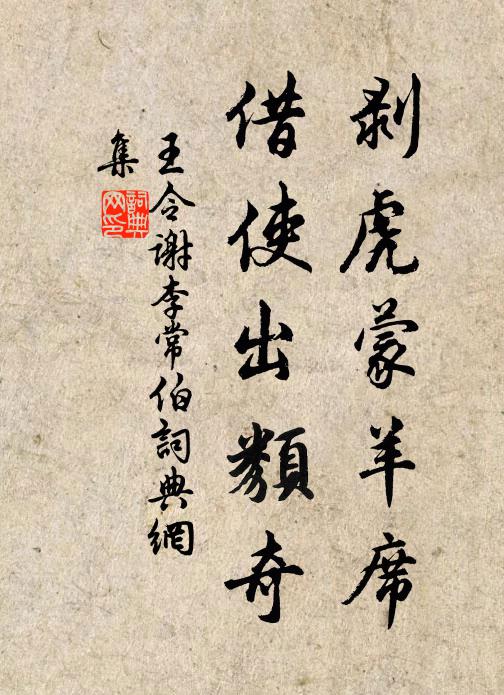 剥虎蒙羊席
借使出類奇
王令謝李常伯詞典網
集
詞典
网印